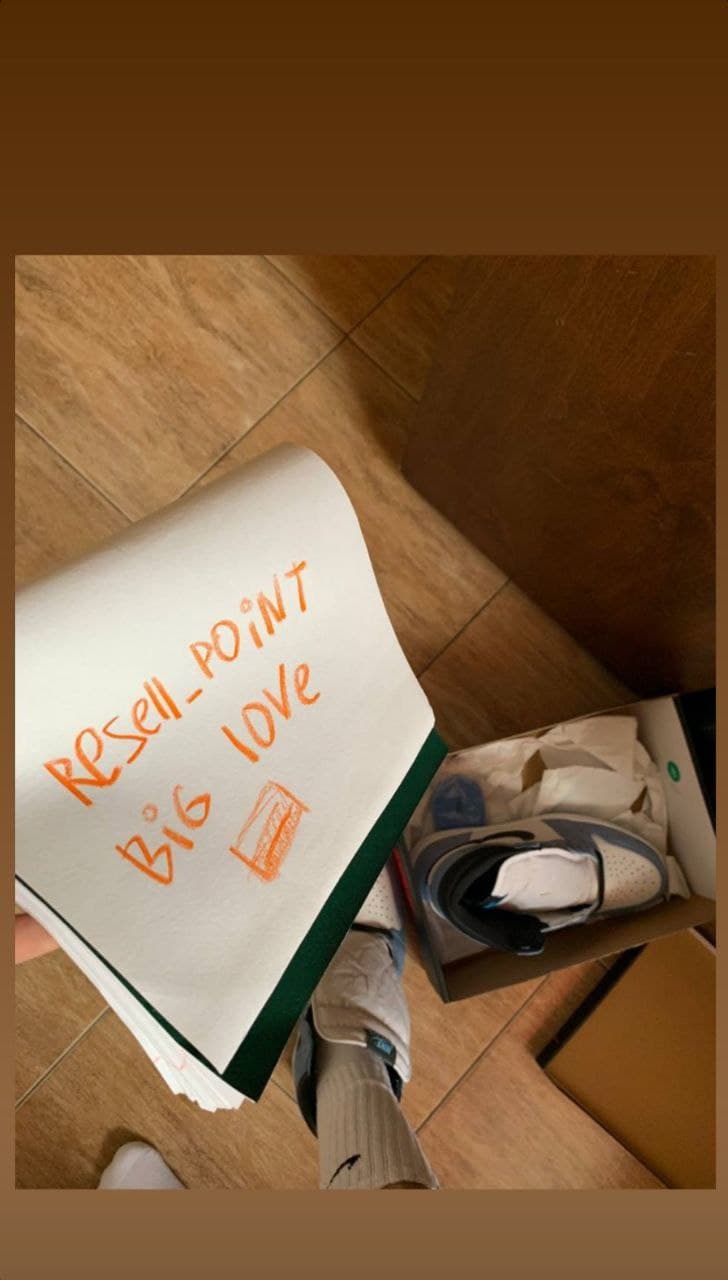 Resell_POiNT
BiG love